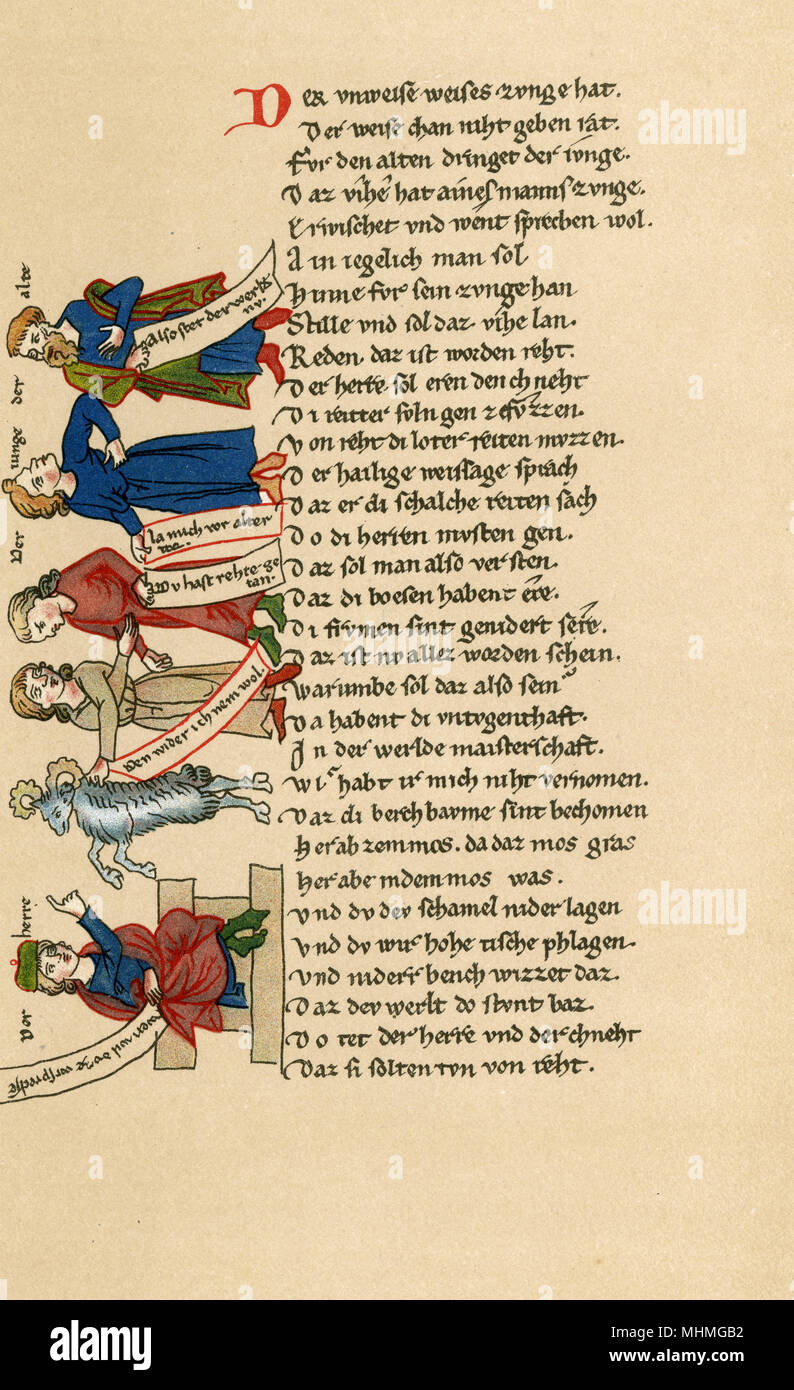 Der unweise weises zvnge hat.
Der weise chan niht geben rat.
Fvr den alten dringet der ivnge.
Daz vihe hat aines manns zvnge.
Erwischet vnd went sprechen wol.
Ain iegelich man sol
Hinne fvr sein zvnge han
Stille vnd sol daz vihe lan.
Reden. daz ist worden reht.
Der herre sol eren den chneht
Di reitter soln gen zefvzzen.
Von reht di loter reiten mvzzen.
Der hailige weissage sprach
Daz er di schalche reiten sach
Do di herren mvsten gen.
Daz sol man also versten.
Daz di boesen habent ere.
Di frvmen sint genidert sere.
Daz ist nv allez worden schein.
Warumbe sol daz also sein
Da habent di vntvgenthaft.
In der werlde maisterschaft.
Wi habt ir mich niht vernomen.
Daz di berchbavme sint bechomen
Herab zem mos. da daz mos gras
her abe in dem mos was.
Vnd do dev schamel nider lagen
Vnd do wir hohe tische phlagen.
Vnd niderr bench wizzet daz.
Daz dev werlt do stvnt baz.
Do tet der herre vnd der chneht
Daz si solten tvn von reht.
der alte
Also stet der werlt nv.
Der iunge
la mich vor alter
Dv hast rehte getan.
Den wider ich nem wol.
Der herre
alamy
Image ID: MHMGB2
www.alamy.com